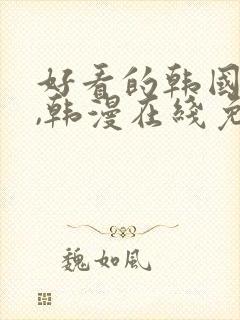 好看的韩国
,韩漫在线免
魏如风